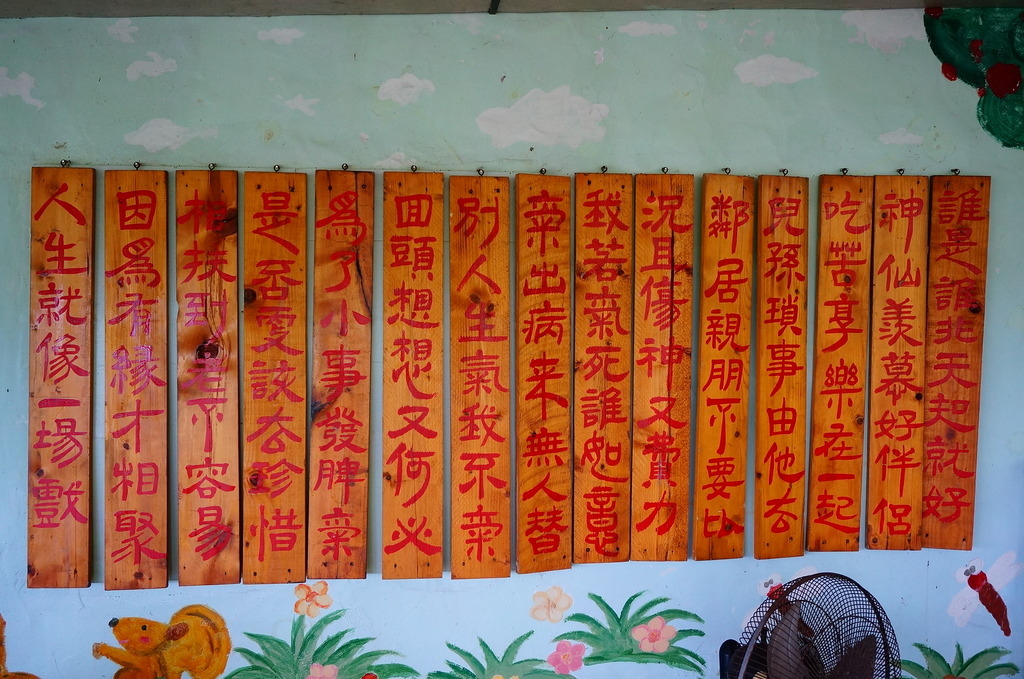 人生就像一場戲
因爲有緣才相聚
相扶到老不容易
是否更該去珍惜
爲了小事發脾氣
回頭想想又何必
別人生氣我不氣
氣出病来無人替
我若氣死誰如意
況且傷神又費力
鄰居親朋不要比
兒孫瑣事由他去
吃苦享樂在一起
神仙羨慕好伴侶
誰是誰非天知就好